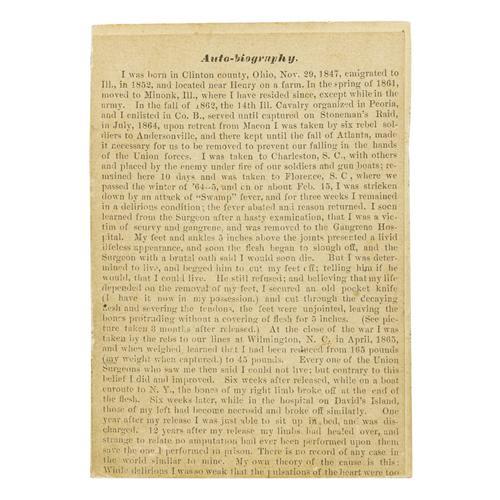 Auto-biography.
I was born in Clinton county, Ohio, Nov. 29, 1847, emigrated to
Ill., in 1852, and located near Henry on a farm. In the spring of 1861,
moved to Minonk, Ill., where I have resided since, except while in the
army. In the fall of 1862, the 14th Ill. Cavalry organized in Peoria,
and I enlisted in Co. B., served until captured on Stoneman's Raid,
in July, 1864, upon retreat from Macon I was taken by six rebel sol-
diers to Andersonville, and there kept until the fall of Atlanta, made
it necessary for us to be removed to prevent our falling in the hands
of the Union forces. I was taken to Charleston, S. C., with others
and placed by the enemy under fire of our soldiers and gun boats; re-
mained here 10 days and was taken to Florence, S. C, where we
passed the winter of '64-5, and on or about Feb. 15, I was stricken
down by an attack of "Swamp" fever, and for three weeks I remained
in a delirious condition; the fever abated and reason returned. I soon
learned from the Surgeon after a hasty examination, that I was a vic-
tim of scurvy and gangrene, and was removed to the Gangrene Hos-
pital. My feet and ankles 5 inches above the joints presented a livid
lifeless appearance, and soon the flesh began to slough off, and the
Surgeon with a brutal oath said I would soon die. But I was deter-
mined to live, and begged him to cut my feet off; telling him if he
would, that I could live. He still refused; and believing that my life
depended on the removal of my feet, I secured an old pocket knife
(I have it now in my possession.) and cut through the decaying
flesh and severing the tendon, the feet were unjointed, leaving the
bones protruding without a covering of flesh for 5 inches. (See pic-
ture taken 3 months after released.) At the close of the war I was
taken by the rebs to our lines at Wilmington, N. C. in April, 1865,
and when weighed learned that I had been reduced from 165 pounds
(my weight when captured.) to 45 pounds. Every one of the Union
Surgeons who saw me then said I could not live; but contrary to this
belief I did and improved. Six weeks after released, while on a boat
enroute to N. Y., the bones of my right limb broke off at the end of
the flesh. Six weeks later, while in the hospital on David's Island,
those of my left had become necrosid and broke off similarly. One
year after my release I was just able to sit up in bed, and was dis-
charged. 12 years after my release my limbs had healed over, and
strange to relate no amputation had ever been performed upon them
save the one I performed in prison. There is no record of any case in
the world similar to mine. My own theory of the cause is this:
While delirious I was so weak that the pulsations of the heart were too